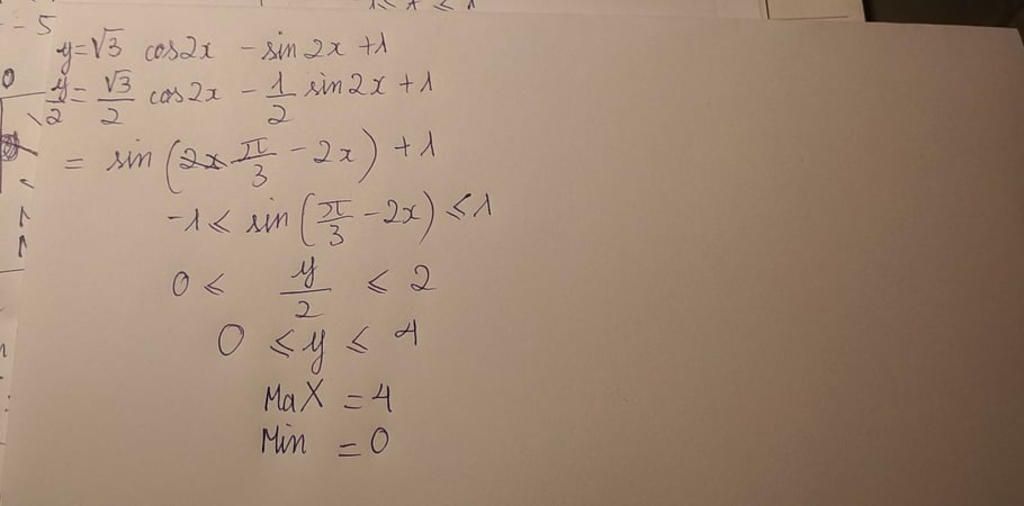 1 ≤ x ≤ 1
- 5
y=√3 cos2x - sin 2x +1
y/2 = √3/2 cos2x - 1/2 sin2x +1
= sin (π/3 - 2x) +1
-1 ≤ sin (π/3 - 2x) ≤ 1
0 ≤ y/2 ≤ 2
0 ≤ y ≤ 4
Max = 4
Min = 0